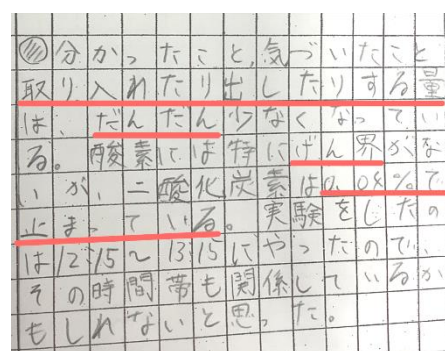 分かったこと、気づいたこと
取り入れたり出したりする量
は、だんだん少なくなってい
る。酸素には特にげん界がな
いが、二酸化炭素は0.04%で
止まっている。実験をしたの
は12:15〜13:15にやったので、
その時間帯も関係しているか
もしれないと思った。